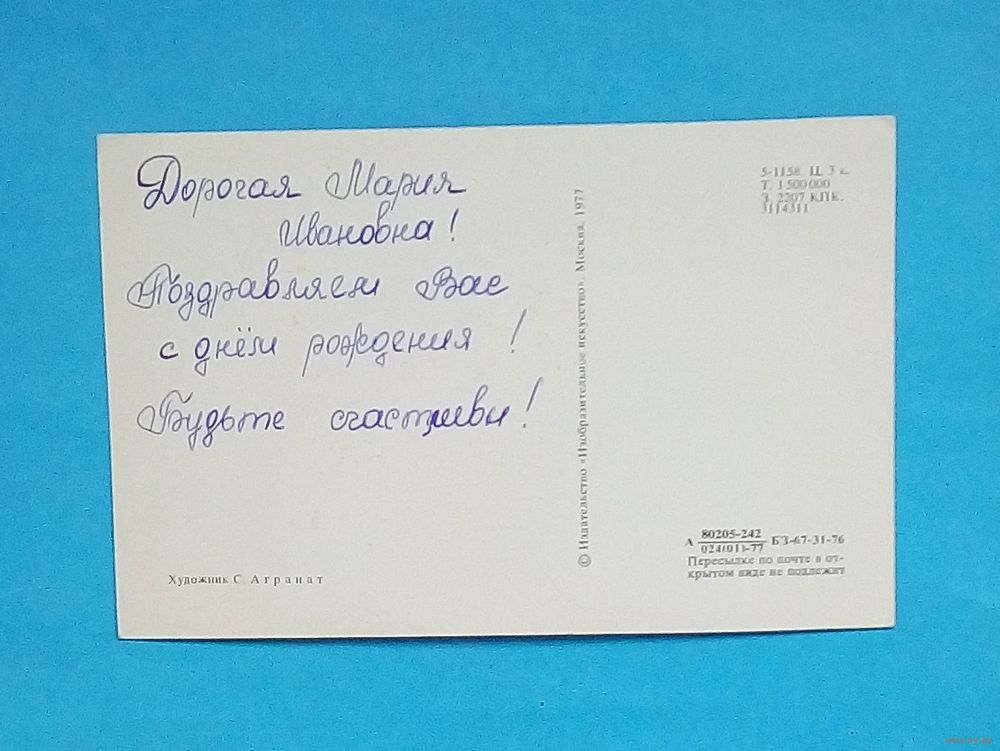 Дорогая Мария
Ивановна!
Поздравляем Вас
с днём рождения!
Будьте счастливы!
Художник С. Агранат
© Издательство «Изобразительное искусство». Москва. 1977
5-1158. Ц. 3 к.
Т. 1 500 000
З. 2207 КПК.
3114311
А 80205-242 БЗ-67-31-76
024(01)-77
Пересылке по почте в от-
крытом виде не подлежит